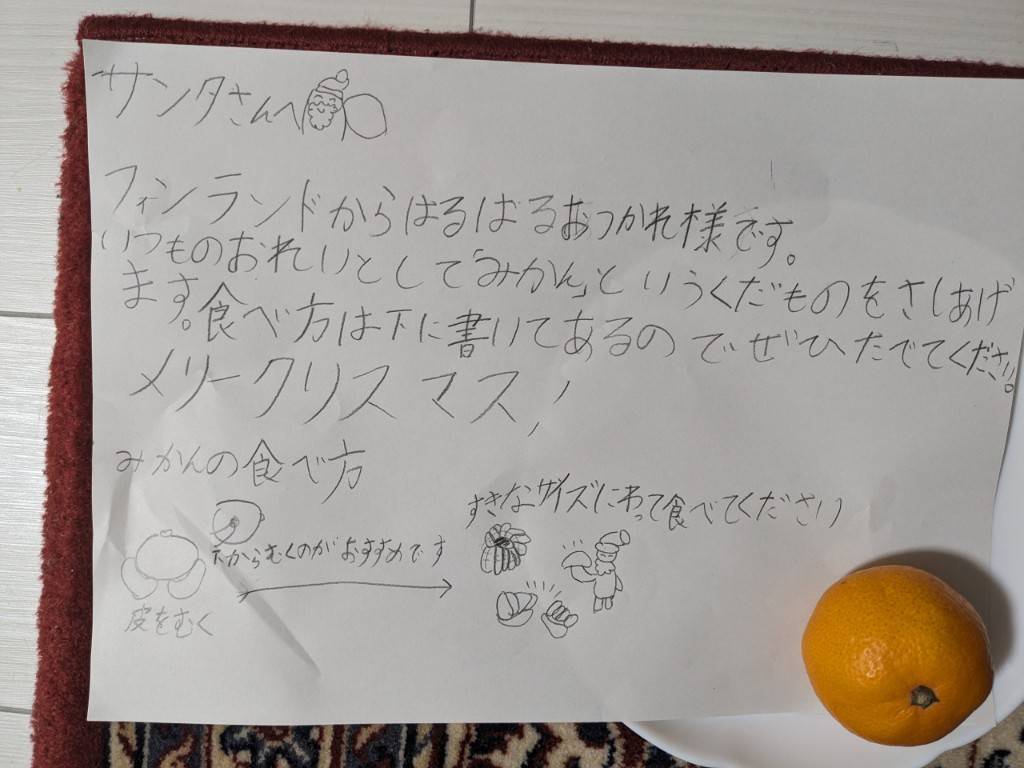 サンタさんへ
フィンランドからはるばるおつかれ様です。
いつものおれいとして「みかん」というくだものをさしあげ
ます。食べ方は下に書いてあるのでぜひたでてください。
メリークリスマス!
みかんの食べ方
すきなサイズにわって食べてください
からむくのがおすすめです
皮をむく